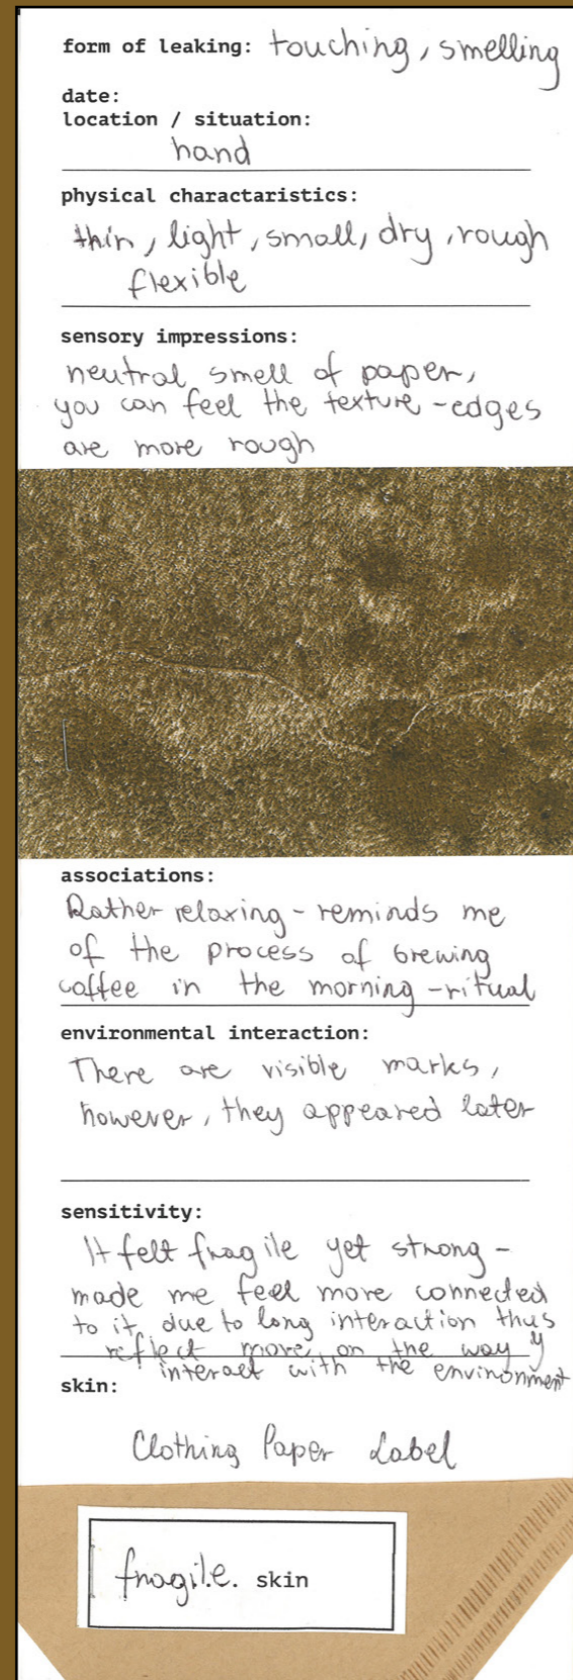 form of leaking: touching, smelling
date:
location / situation:
hand
physical charactaristics:
thin, light, small, dry, rough
flexible
sensory impressions:
neutral smell of paper,
you can feel the texture - edges
are more rough
associations:
Rather relaxing - reminds me
of the process of brewing
coffee in the morning - ritual
environmental interaction:
There are visible marks,
however, they appeared later
sensitivity:
It felt fragile yet strong -
made me feel more connected
to it, due to long interaction thus
reflect more, on the way y
interact with the environment
skin:
Clothing Paper Label
fragile. skin